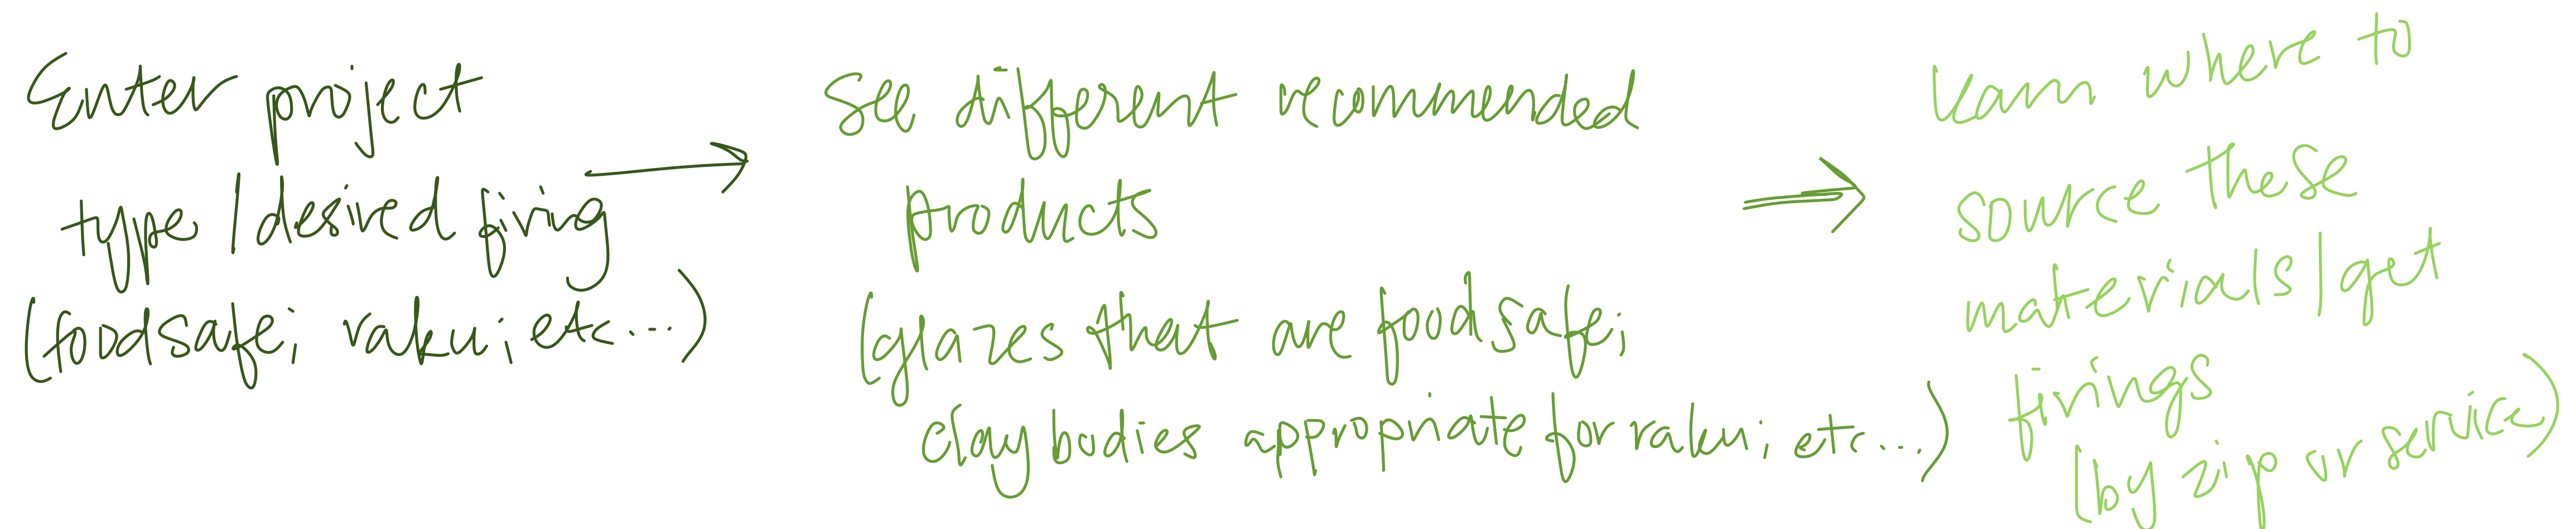 Enter project
type / desired firing
(foodsafe; raku; etc...)
See different recommended
products
(glazes that are food safe;
clay bodies appropriate for raku; etc...)
learn where to
source these
materials / get
firings
(by zip or service)